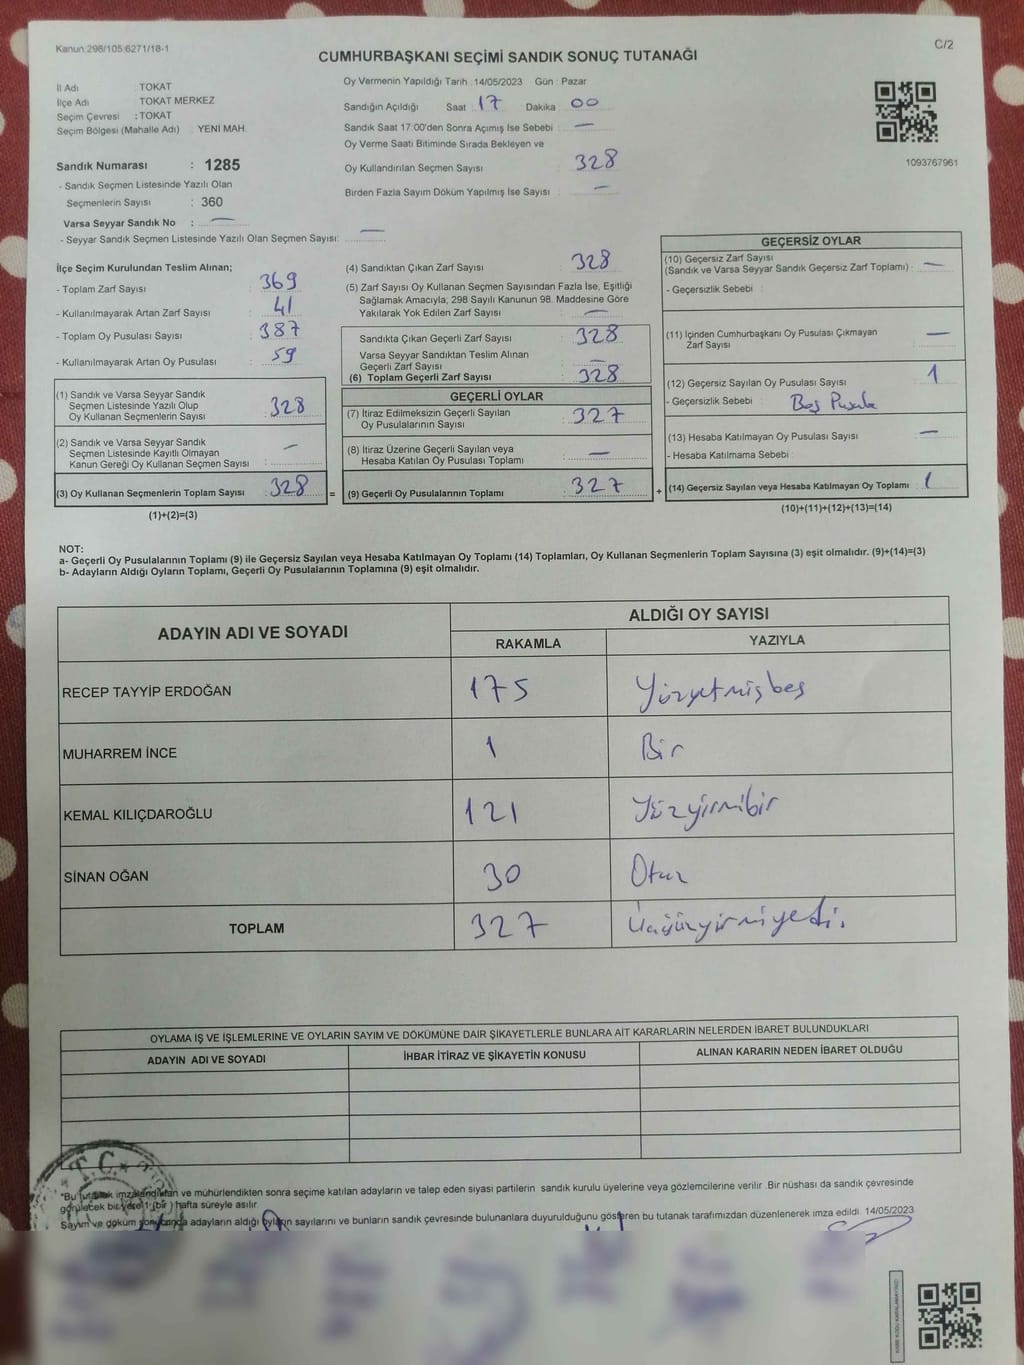 Kanun:298/105,6271/18-1
C/2
CUMHURBAŞKANI SEÇİMİ SANDIK SONUÇ TUTANAĞI
İl Adı : TOKAT
İlçe Adı TOKAT MERKEZ
Seçim Çevresi : TOKAT
Seçim Bölgesi (Mahalle Adı) YENİ MAH.
Sandık Numarası : 1285
- Sandık Seçmen Listesinde Yazılı Olan
Seçmenlerin Sayısı : 360
Varsa Seyyar Sandık No : —
- Seyyar Sandık Seçmen Listesinde Yazılı Olan Seçmen Sayısı: —
Oy Vermenin Yapıldığı Tarih : 14/05/2023 Gün : Pazar
Sandığın Açıldığı Saat : 17 Dakika : 00
Sandık Saat 17.00'den Sonra Açımış İse Sebebi : —
Oy Verme Saati Bitiminde Sırada Bekleyen ve
Oy Kullandırılan Seçmen Sayısı : 328
Birden Fazla Sayım Döküm Yapılmış İse Sayısı : —
1093767961
İlçe Seçim Kurulundan Teslim Alınan;
- Toplam Zarf Sayısı : 369
- Kullanılmayarak Artan Zarf Sayısı : 41
- Toplam Oy Pusulası Sayısı : 387
- Kullanılmayarak Artan Oy Pusulası : 59
(1) Sandık ve Varsa Seyyar Sandık
Seçmen Listesinde Yazılı Olup
Oy Kullanan Seçmenlerin Sayısı : 328
(2) Sandık ve Varsa Seyyar Sandık
Seçmen Listesinde Kayıtlı Olmayan
Kanun Gereği Oy Kullanan Seçmen Sayısı : —
(3) Oy Kullanan Seçmenlerin Toplam Sayısı : 328 =
(1)+(2)=(3)
(4) Sandıktan Çıkan Zarf Sayısı : 328
(5) Zarf Sayısı Oy Kullanan Seçmen Sayısından Fazla İse, Eşitliği
Sağlamak Amacıyla, 298 Sayılı Kanunun 98. Maddesine Göre
Yakılarak Yok Edilen Zarf Sayısı : —
Sandıkta Çıkan Geçerli Zarf Sayısı : 328
Varsa Seyyar Sandıktan Teslim Alınan
Geçerli Zarf Sayısı : —
(6) Toplam Geçerli Zarf Sayısı : 328
GEÇERLİ OYLAR
(7) İtiraz Edilmeksizin Geçerli Sayılan
Oy Pusulalarının Sayısı : 327
(8) İtiraz Üzerine Geçerli Sayılan veya
Hesaba Katılan Oy Pusulası Toplamı : —
(9) Geçerli Oy Pusulalarının Toplamı : 327 +
GEÇERSİZ OYLAR
(10) Geçersiz Zarf Sayısı
(Sandık ve Varsa Seyyar Sandık Geçersiz Zarf Toplamı) : —
- Geçersizlik Sebebi :
(11) İçinden Cumhurbaşkanı Oy Pusulası Çıkmayan
Zarf Sayısı : —
(12) Geçersiz Sayılan Oy Pusulası Sayısı : 1
- Geçersizlik Sebebi : Boş Pusula
(13) Hesaba Katılmayan Oy Pusulası Sayısı : —
- Hesaba Katılmama Sebebi :
(14) Geçersiz Sayılan veya Hesaba Katılmayan Oy Toplamı : 1
(10)+(11)+(12)+(13)=(14)
NOT:
a- Geçerli Oy Pusulalarının Toplamı (9) ile Geçersiz Sayılan veya Hesaba Katılmayan Oy Toplamı (14) Toplamları, Oy Kullanan Seçmenlerin Toplam Sayısına (3) eşit olmalıdır. (9)+(14)=(3)
b- Adayların Aldığı Oyların Toplamı, Geçerli Oy Pusulalarının Toplamına (9) eşit olmalıdır.
ADAYIN ADI VE SOYADI
ALDIĞI OY SAYISI
RAKAMLA YAZIYLA
RECEP TAYYİP ERDOĞAN 175 Yüzyetmişbeş
MUHARREM İNCE 1 Bir
KEMAL KILIÇDAROĞLU 121 Yüzyirmibir
SİNAN OĞAN 30 Otuz
TOPLAM 327 Üçyüzyirmiyedi.
OYLAMA İŞ VE İŞLEMLERİNE VE OYLARIN SAYIM VE DÖKÜMÜNE DAİR ŞİKAYETLERLE BUNLARA AİT KARARLARIN NELERDEN İBARET BULUNDUKLARI
ADAYIN ADI VE SOYADI İHBAR İTİRAZ VE ŞİKAYETİN KONUSU ALINAN KARARIN NEDEN İBARET OLDUĞU
T.C.
*Bu tutanak imzalandıktan ve mühürlendikten sonra seçime katılan adayların ve talep eden siyasi partilerin sandık kurulu üyelerine veya gözlemcilerine verilir .Bir nüshası da sandık çevresinde
görülecek bir yere 1 (bir ) hafta süreyle asılır
Sayım ve döküm sonucunda adayların aldığı oyların sayılarını ve bunların sandık çevresinde bulunanlara duyurulduğunu gösteren bu tutanak tarafımızdan düzenlenerek imza edildi. 14/05/2023